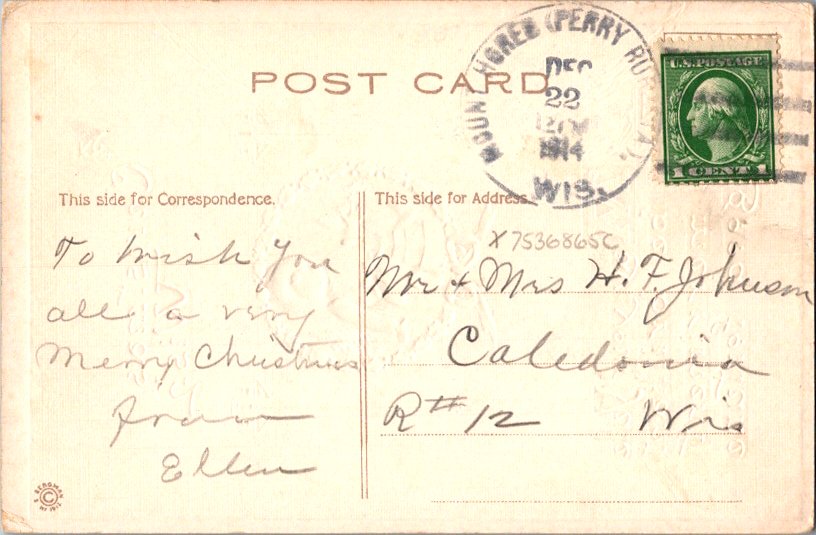 MOUNT HOREB (PERRY RUR. STA).
DEC
22
1914
WIS.
U.S. POSTAGE
1 CENT 1
POST CARD
This side for Correspondence.
This side for Address.
x 7536865C
To wish you
all a very
Merry Christmas
from
Ellen
Mr + Mrs H. F. Johnson
Caledonia
R# 12 Wis
S. BERGMAN
©
NY 1912